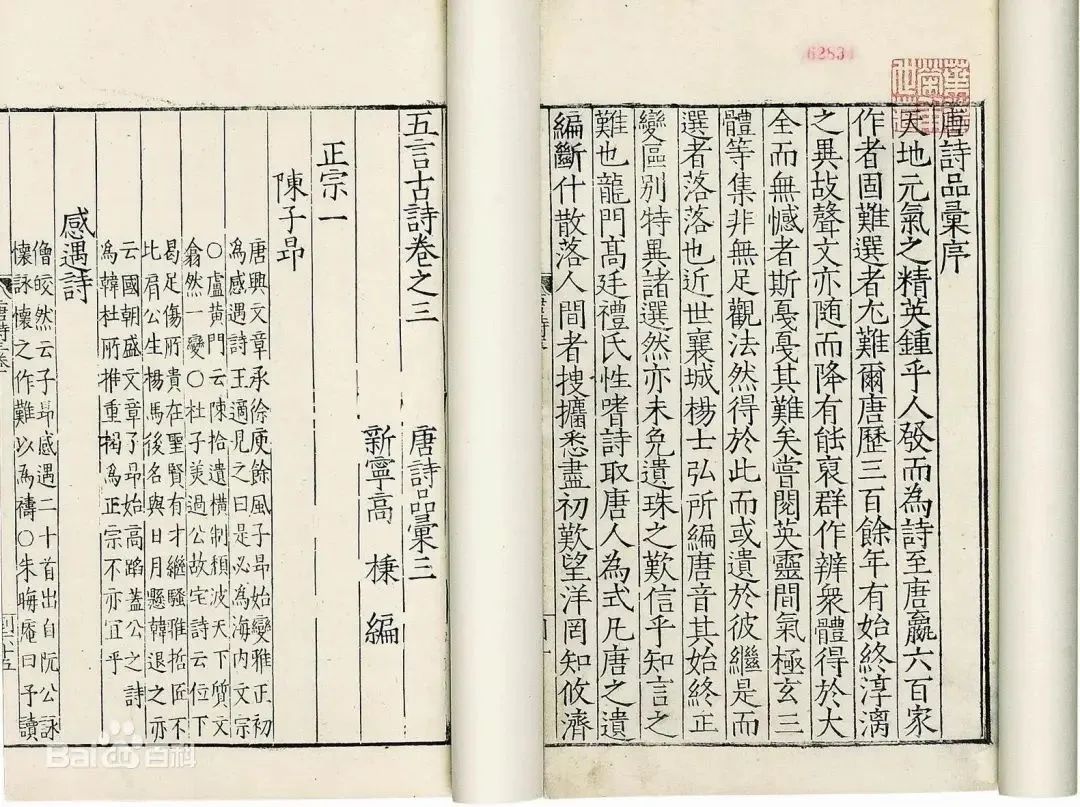 62834
唐詩品彙序
天地元氣之精英鍾乎人發而為詩至唐嬴六百家
作者固難選者尤難爾唐歷三百餘年有始終淳漓
之異故聲文亦随而降有能裒群作辨衆體得於大
全而無憾者斯戞戞其難矣嘗閱英靈間氣極玄三
體等集非無足觀法然得於此而或遺於彼繼是而
選者落落也近世襄城楊士弘所編唐音其始終正
變區別特異諸選然亦未免遺珠之歎信乎知言之
難也龍門髙廷禮氏性嗜詩取唐人為式凡唐之遺
編斷什散落人間者搜攟悉盡初歎望洋罔知攸濟
五言古詩卷之三 唐詩品彙三
新寧高 棅 編
正宗一
陳子昂
唐興文章承徐庾餘風子昂始變雅正初
為感遇詩王適見之曰是必為海内文宗
○盧黄門云陳拾遺横制頹波天下質文
翕然一變○杜子美過公故宅詩云位下
曷足傷所貴在聖賢有才繼騷雅哲匠不
比肩公生楊馬後名與日月懸韓退之亦
云國朝盛文章子昂始高蹈蓋公之詩
為韓杜所推重揭為正宗不亦宜乎
感遇詩
僧皎然云子昂感遇三十首出自阮公詠
懷詠懷之作難以為儔○朱晦庵曰予讀
Bai百科